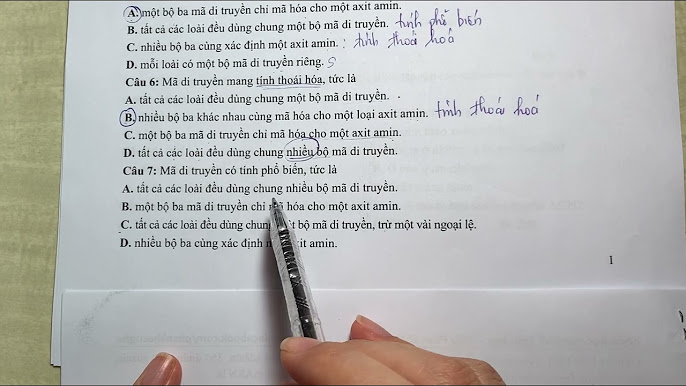 A. một bộ ba mã di truyền chỉ mã hóa cho một axit amin.
B. tất cả các loài đều dùng chung một bộ mã di truyền. tính phổ biến
C. nhiều bộ ba cùng xác định một axit amin. : tính thoái hoá
D. mỗi loài có một bộ mã di truyền riêng. S
Câu 6: Mã di truyền mang tính thoái hóa, tức là
A. tất cả các loài đều dùng chung một bộ mã di truyền.
B. nhiều bộ ba khác nhau cùng mã hóa cho một loại axit amin. tính thoái hoá
C. một bộ ba mã di truyền chỉ mã hóa cho một axit amin.
D. tất cả các loài đều dùng chung nhiều bộ mã di truyền.
Câu 7: Mã di truyền có tính phổ biến, tức là
A. tất cả các loài đều dùng chung nhiều bộ mã di truyền.
B. một bộ ba mã di truyền chỉ mã hóa cho một axit amin.
C. tất cả các loài đều dùng bộ mã di truyền, trừ một vài ngoại lệ.
D. nhiều bộ ba cùng xác định axit amin.
1